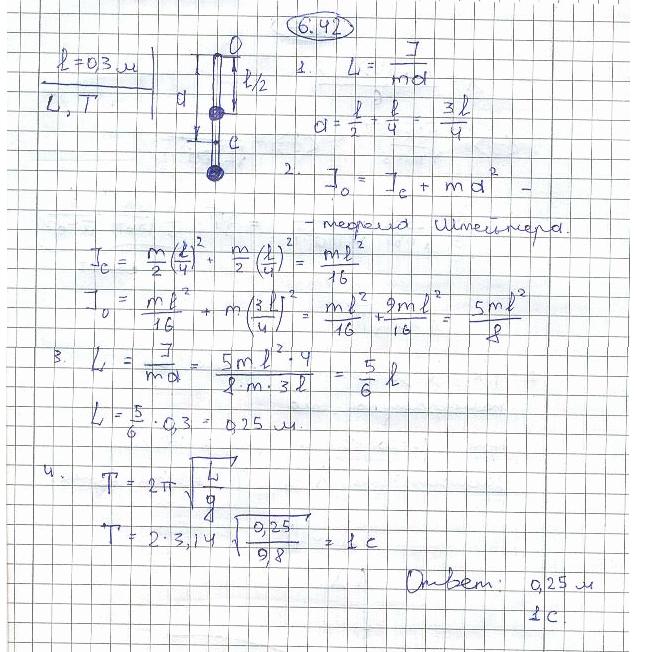 6.42
l = 0,3 м
L, T
O
l/2
d
C
1. L = J/(md)
d = l/2 + l/4 = 3l/4
2. J₀ = J_C + md² –
– теорема Штейнера.
J_C = m/2 (l/4)² + m/2 (l/4)² = ml²/16
J₀ = ml²/16 + m(3l/4)² = ml²/16 + 9ml²/16 = 5ml²/8
3. L = J/(md) = (5ml²·4)/(8·m·3l) = 5/6 l
L = 5/6 · 0,3 = 0,25 м.
4. T = 2π √(L/g)
T = 2·3,14 √(0,25/9,8) = 1 с
Ответ: 0,25 м
1 с.